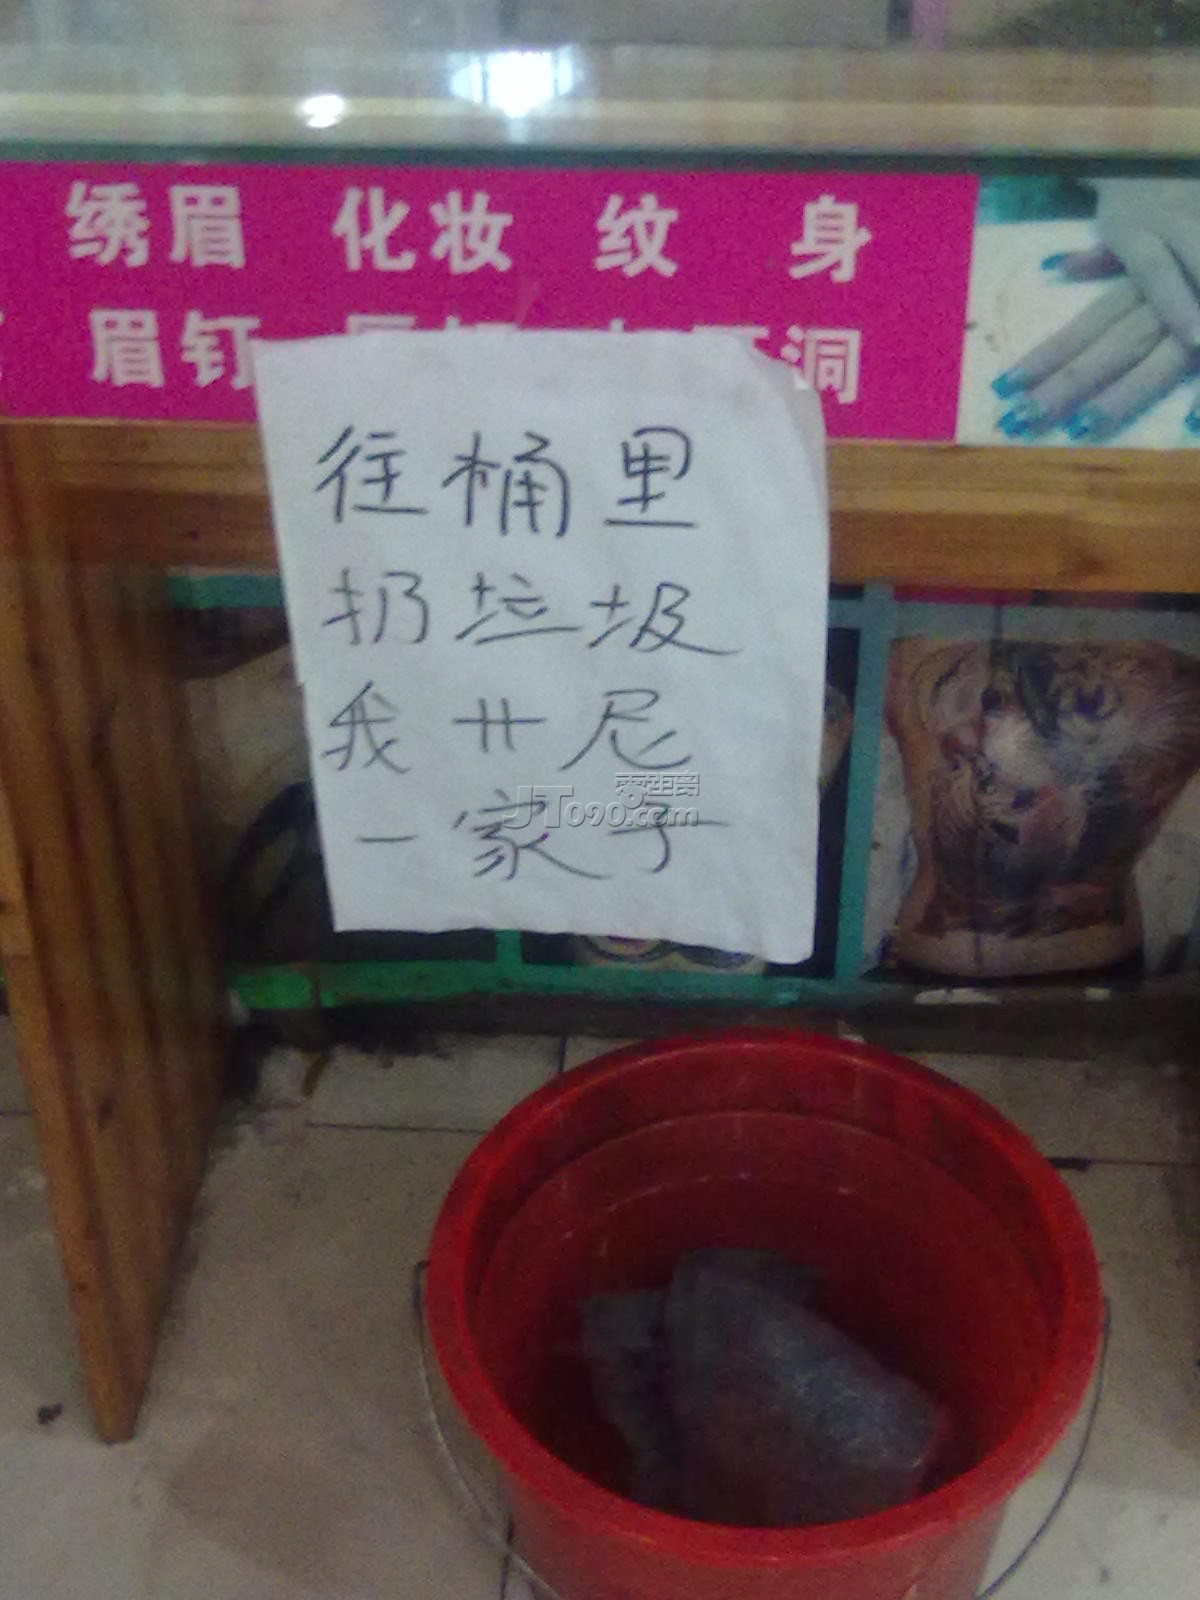 绣眉 化妆 纹 身
眉钉 洞
往桶里
扔垃圾
我艹尼
一家子
JT090.com